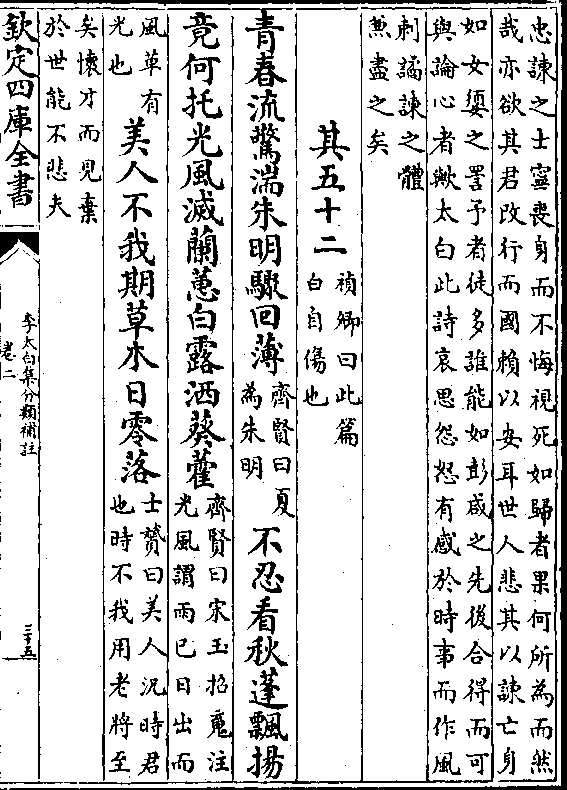 忠諫之士寧喪身而不悔視死如歸者果何所為而然
哉亦欲其君改行而國賴以安耳世人悲其以諫亡身
如女嬃之詈予者徒多誰能如彭咸之先後合得而可
與論心者歟太白此詩哀思怨怒有感於時事而作風
刺譎諫之體
兼盡之矣
其五十二
禎卿曰此篇
白自傷也
青春流驚湍朱明驟回薄
齊賢曰夏
為朱明
不忍看秋蓬飄揚
竟何托光風滅蘭蕙白露洒葵藿
齊賢曰宋玉招䰟注
光風謂雨已日出而
風草有
光也
美人不我期草木日零落
士贇曰美人況時君
也時不我用老將至
矣懷才而見棄
於世能不悲夫
欽定四庫全書
李太白集分類補註
卷二
三十五